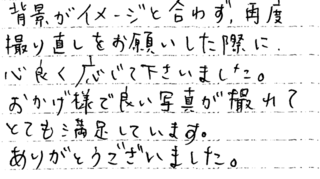 背景がイメージと合わず,再度
撮り直しをお願いした際に、
心良く応じて下さいました。
おかげ様で良い写真が撮れて
とても満足しています。
ありがとうございました。